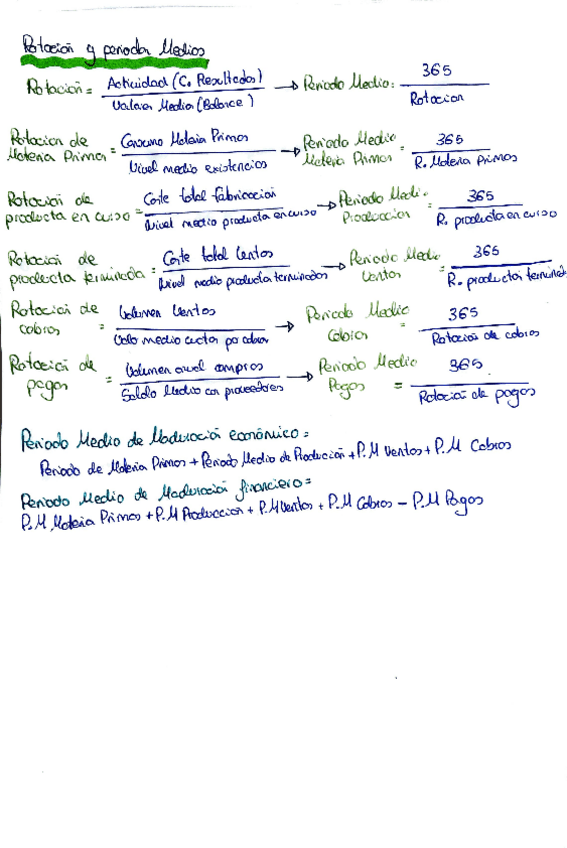 Rotación y periodos Medios
Rotación = Actividad (C. Resultados) / Valores Medios (Balance) → Periodo Medio: 365 / Rotacion
Rotacion de Materia Primas = Consumo Materia Primas / Nivel medio existencias → Periodo Medio Materia Primas = 365 / R. Materia primas
Rotación de productos en curso = Coste total fabricación / Nivel medio productos en curso → Periodo Medio Produccion = 365 / R. productos en curso
Rotación de productos terminados = Coste total Ventas / Nivel medio productos terminados → Periodo Medio Ventas = 365 / R. productos terminad
Rotación de cobros = Volumen Ventas / medio cuotas por cobrar → Periodo Medio Cobros = 365 / Rotación de cobros
Rotación de pagos = Volumen anual compras / Saldo Medio con proveedores → Periodo Medio Pagos = 365 / Rotación de pagos
Periodo Medio de Maduración económico =
Periodo de Materia Primas + Periodo Medio de Producción + P.M Ventas + P.M Cobros
Periodo Medio de Maduración financiero =
P.M Materia Primas + P.M Produccion + P.M Ventas + P.M Cobros - P.M Pagos